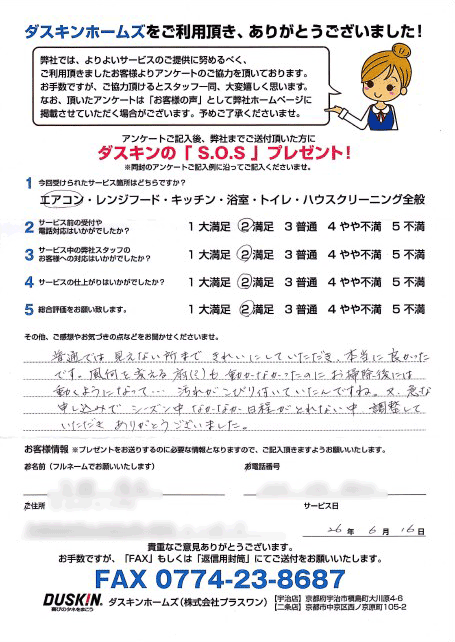 ダスキンホームズをご利用頂き、ありがとうございました!
弊社では、よりよいサービスのご提供に努めるべく、
ご利用頂きましたお客様よりアンケートのご協力を頂いております。
お手数ですが、ご協力頂けるとスタッフ一同、大変嬉しく思います。
なお、頂いたアンケートは「お客様の声」として弊社ホームページに
掲載させていただく場合がございます。予めご了承くださいませ。
アンケートご記入後、弊社までご送付頂いた方に
ダスキンの「 S.O.S 」プレゼント!
※同封のアンケートご記入例に沿ってご記入くださいませ。
1 今回受けられたサービス箇所はどちらですか?
エアコン・レンジフード・キッチン・浴室・トイレ・ハウスクリーニング全般
2 サービス前の受付や
電話対応はいかがでしたか? 1 大満足 2 満足 3 普通 4 やや不満 5 不満
3 サービス中の弊社スタッフの
お客様への対応はいかがでしたか? 1 大満足 2 満足 3 普通 4 やや不満 5 不満
4 サービスの仕上がりはいかがでしたか? 1 大満足 2 満足 3 普通 4 やや不満 5 不満
5 総合評価をお願い致します。 1 大満足 2 満足 3 普通 4 やや不満 5 不満
その他、ご感想やお気づきの点などをお聞かせくださいませ。
普通では見えない所まできれいにしていただき、本当に良かった
です。風向を変える羽(?)も動かなかったのにお掃除後には
動くようになって… 汚れがこびり付いていたんですね。又、急な
申し込みでシーズン中なかなか日程がとれない中、調整して
いただきありがとうございました。
お客様情報 ※プレゼントをお送りするのに必要な情報となりますので、ご記入頂きますようお願いいたします。
お名前(フルネームでお願いいたします) お電話番号
ご住所 サービス日
26 年 6 月 16 日
貴重なご意見ありがとうございます。
お手数ですが、「FAX」もしくは「返信用封筒」にてご送付をお願いいたします。
FAX 0774-23-8687
DUSKIN. 喜びのタネをまこう ダスキンホームズ(株式会社プラスワン) 【宇治店】京都府宇治市槇島町大川原4-6
【二条店】京都市中京区西ノ京原町105-2